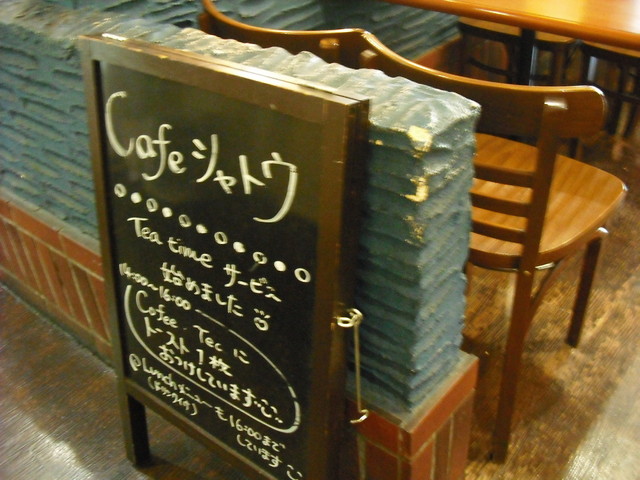 Cafe シャトウ
Tea time サービス
始めました
14:00~16:00
Cofee・Tea に
トースト1枚
おつけしています
@Lunchメニューも16:00まで
しています